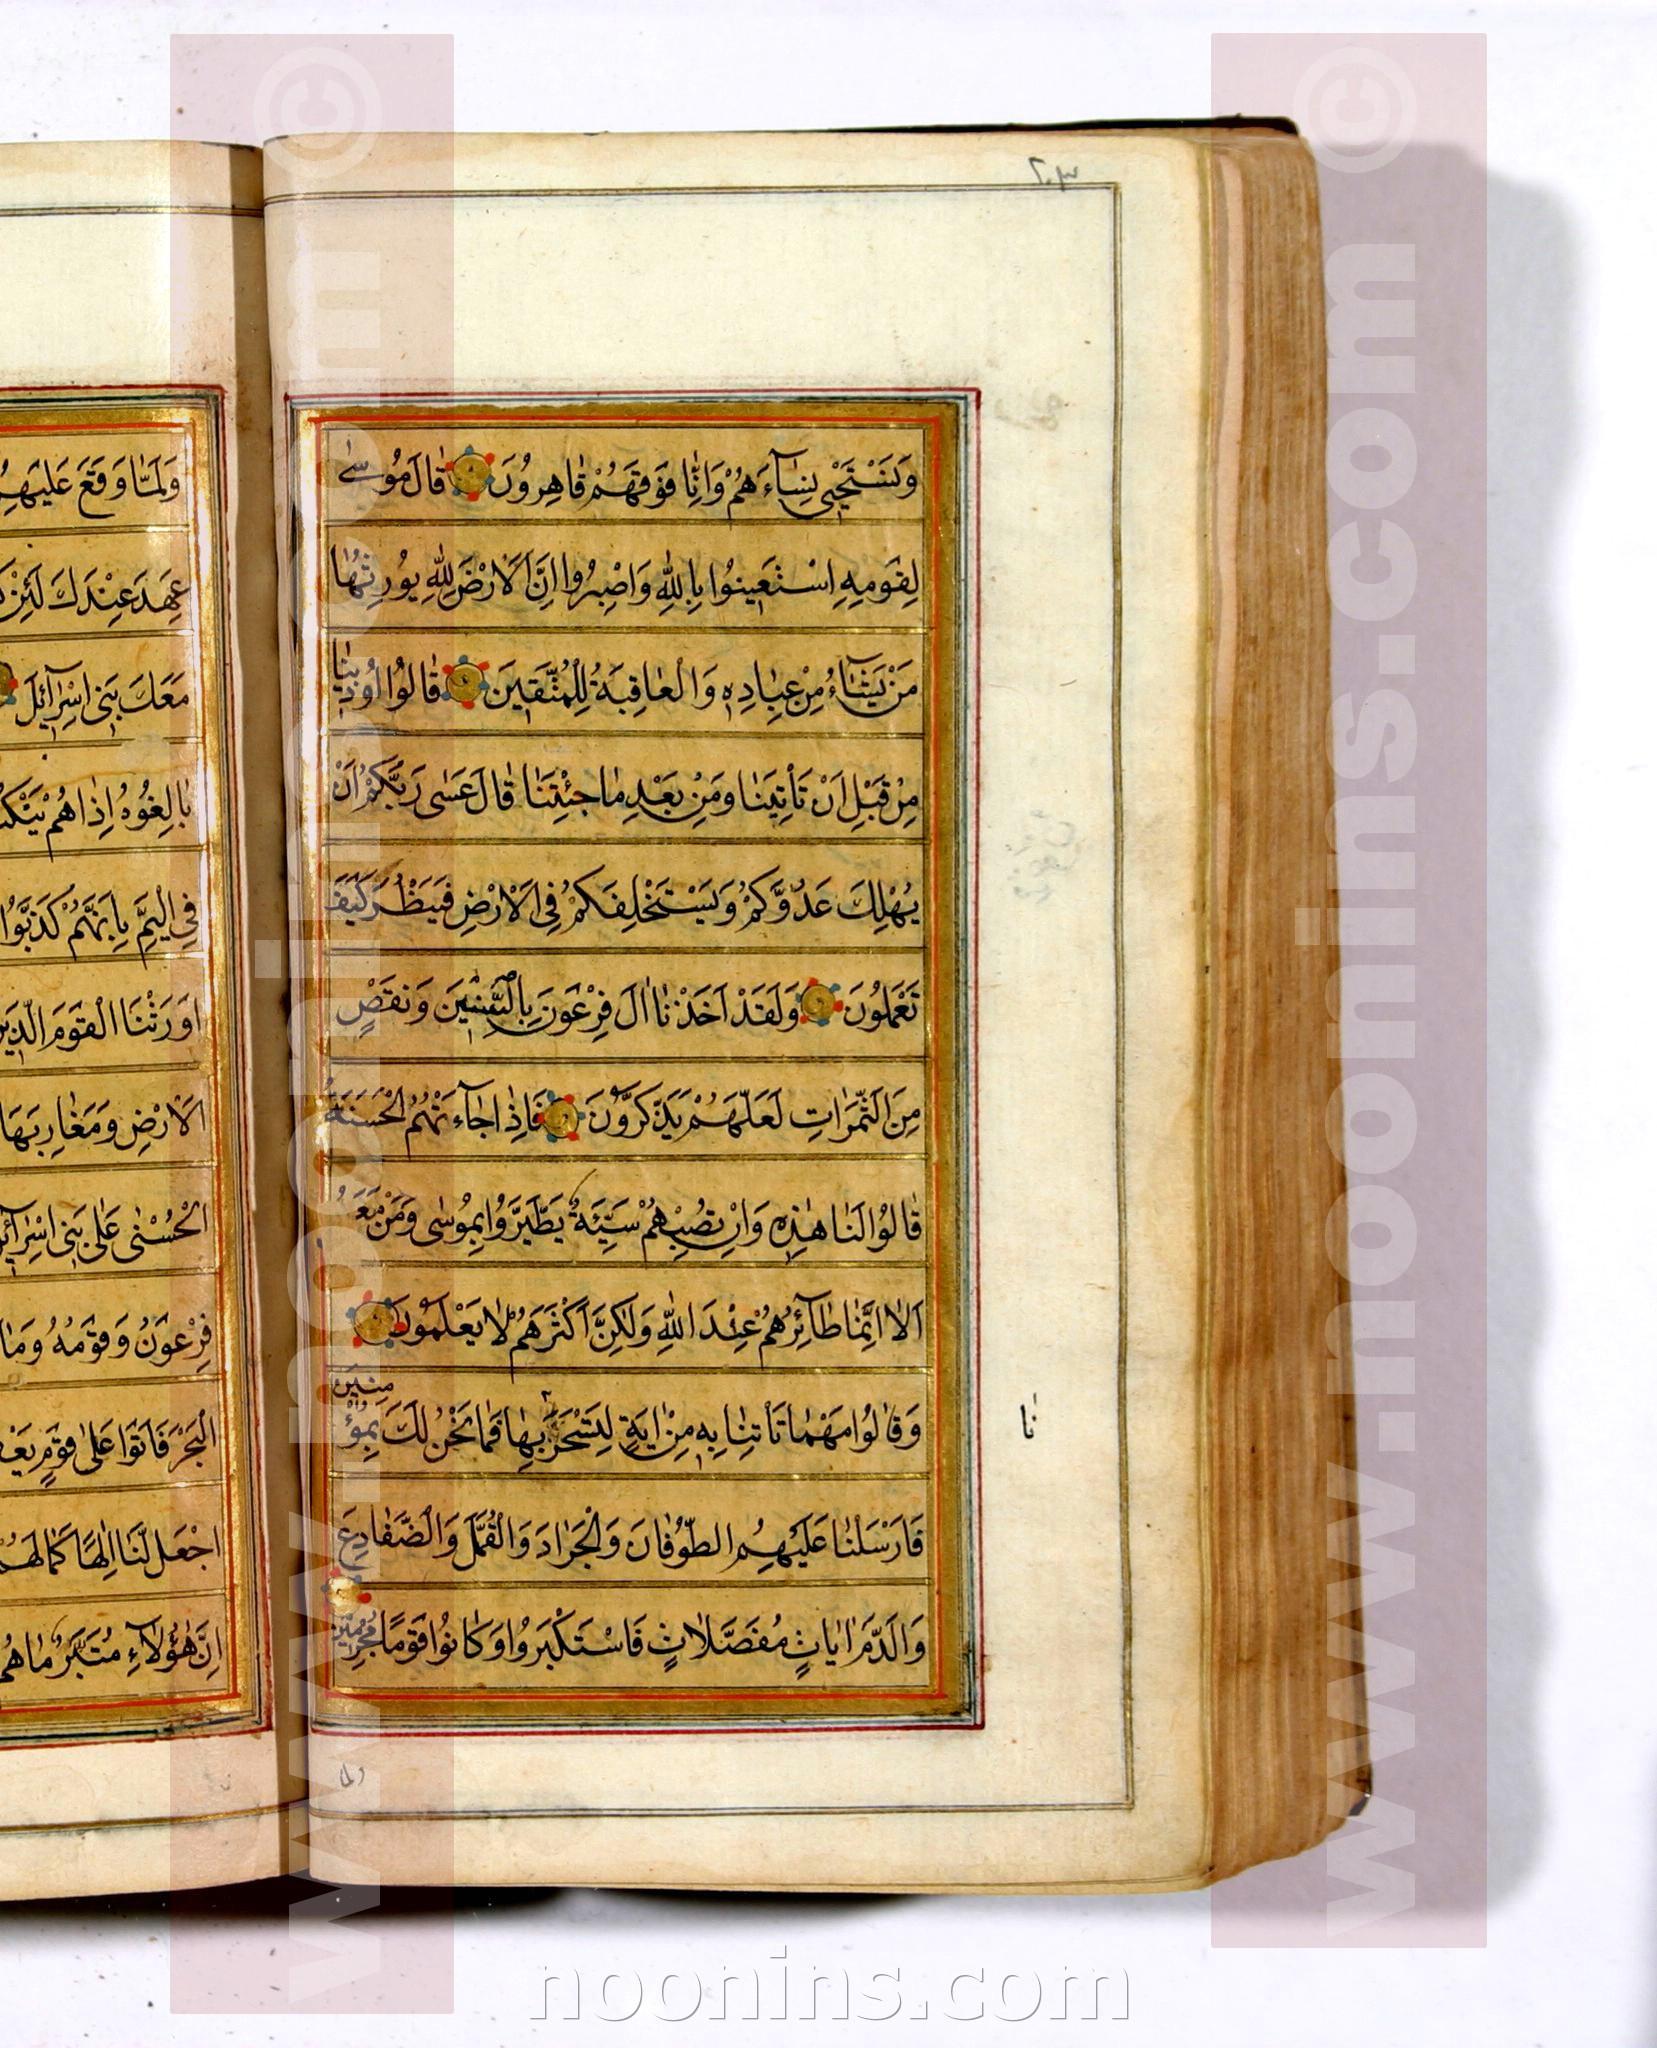 ٢٠٣
وَنَسْتَحْيِي نِسَاءَهُمْ وَإِنَّا فَوْقَهُمْ قَاهِرُونَ قَالَ مُوسَىٰ
لِقَوْمِهِ اسْتَعِينُوا بِاللَّهِ وَاصْبِرُوا إِنَّ الْأَرْضَ لِلَّهِ يُورِثُهَا
مَنْ يَشَاءُ مِنْ عِبَادِهِ وَالْعَاقِبَةُ لِلْمُتَّقِينَ قَالُوا أُوذِينَا
مِنْ قَبْلِ أَنْ تَأْتِيَنَا وَمِنْ بَعْدِ مَا جِئْتَنَا قَالَ عَسَى رَبُّكُمْ أَنْ
يُهْلِكَ عَدُوَّكُمْ وَيَسْتَخْلِفَكُمْ فِي الْأَرْضِ فَيَنْظُرَ كَيْفَ
تَعْمَلُونَ وَلَقَدْ أَخَذْنَا آلَ فِرْعَوْنَ بِالسِّنِينَ وَنَقْصٍ
مِنَ الثَّمَرَاتِ لَعَلَّهُمْ يَذَّكَّرُونَ فَإِذَا جَاءَتْهُمُ الْحَسَنَةُ
قَالُوا لَنَا هٰذِهِ وَإِنْ تُصِبْهُمْ سَيِّئَةٌ يَطَّيَّرُوا بِمُوسَى وَمَنْ مَعَهُ
أَلَا إِنَّمَا طَائِرُهُمْ عِنْدَ اللَّهِ وَلٰكِنَّ أَكْثَرَهُمْ لَا يَعْلَمُونَ
وَقَالُوا مَهْمَا تَأْتِنَا بِهِ مِنْ آيَةٍ لِتَسْحَرَ بِهَا فَمَا نَحْنُ لَكَ بِمُؤْمِنِينَ
نَا
فَأَرْسَلْنَا عَلَيْهِمُ الطُّوفَانَ وَالْجَرَادَ وَالْقُمَّلَ وَالضَّفَادِعَ
وَالدَّمَ آيَاتٍ مُفَصَّلَاتٍ فَاسْتَكْبَرُوا وَكَانُوا قَوْمًا مُجْرِمِينَ
ولما
وَلَمَّا وَقَعَ عَلَيْهِمُ
عَهِدَ عِنْدَكَ لَئِنْ
مَعَكَ بَنِي إِسْرَائِيلَ
بَالِغُوهُ إِذَا هُمْ يَنْكُ
فِي الْيَمِّ بِأَنَّهُمْ كَذَّبُوا
أَوْرَثْنَا الْقَوْمَ الَّذِينَ
الْأَرْضِ وَمَغَارِبَهَا
الْحُسْنَى عَلَى بَنِي إِسْرَائِ
فِرْعَوْنُ وَقَوْمُهُ وَمَا
الْبَحْرَ فَأَتَوْا عَلَى قَوْمٍ يَعْ
اجْعَلْ لَنَا إِلٰهًا كَمَا لَهُمْ
إِنَّ هٰؤُلَاءِ مُتَبَّرٌ مَا هُمْ
www.noonins.com ©
www.noonins.com ©
noonins.com